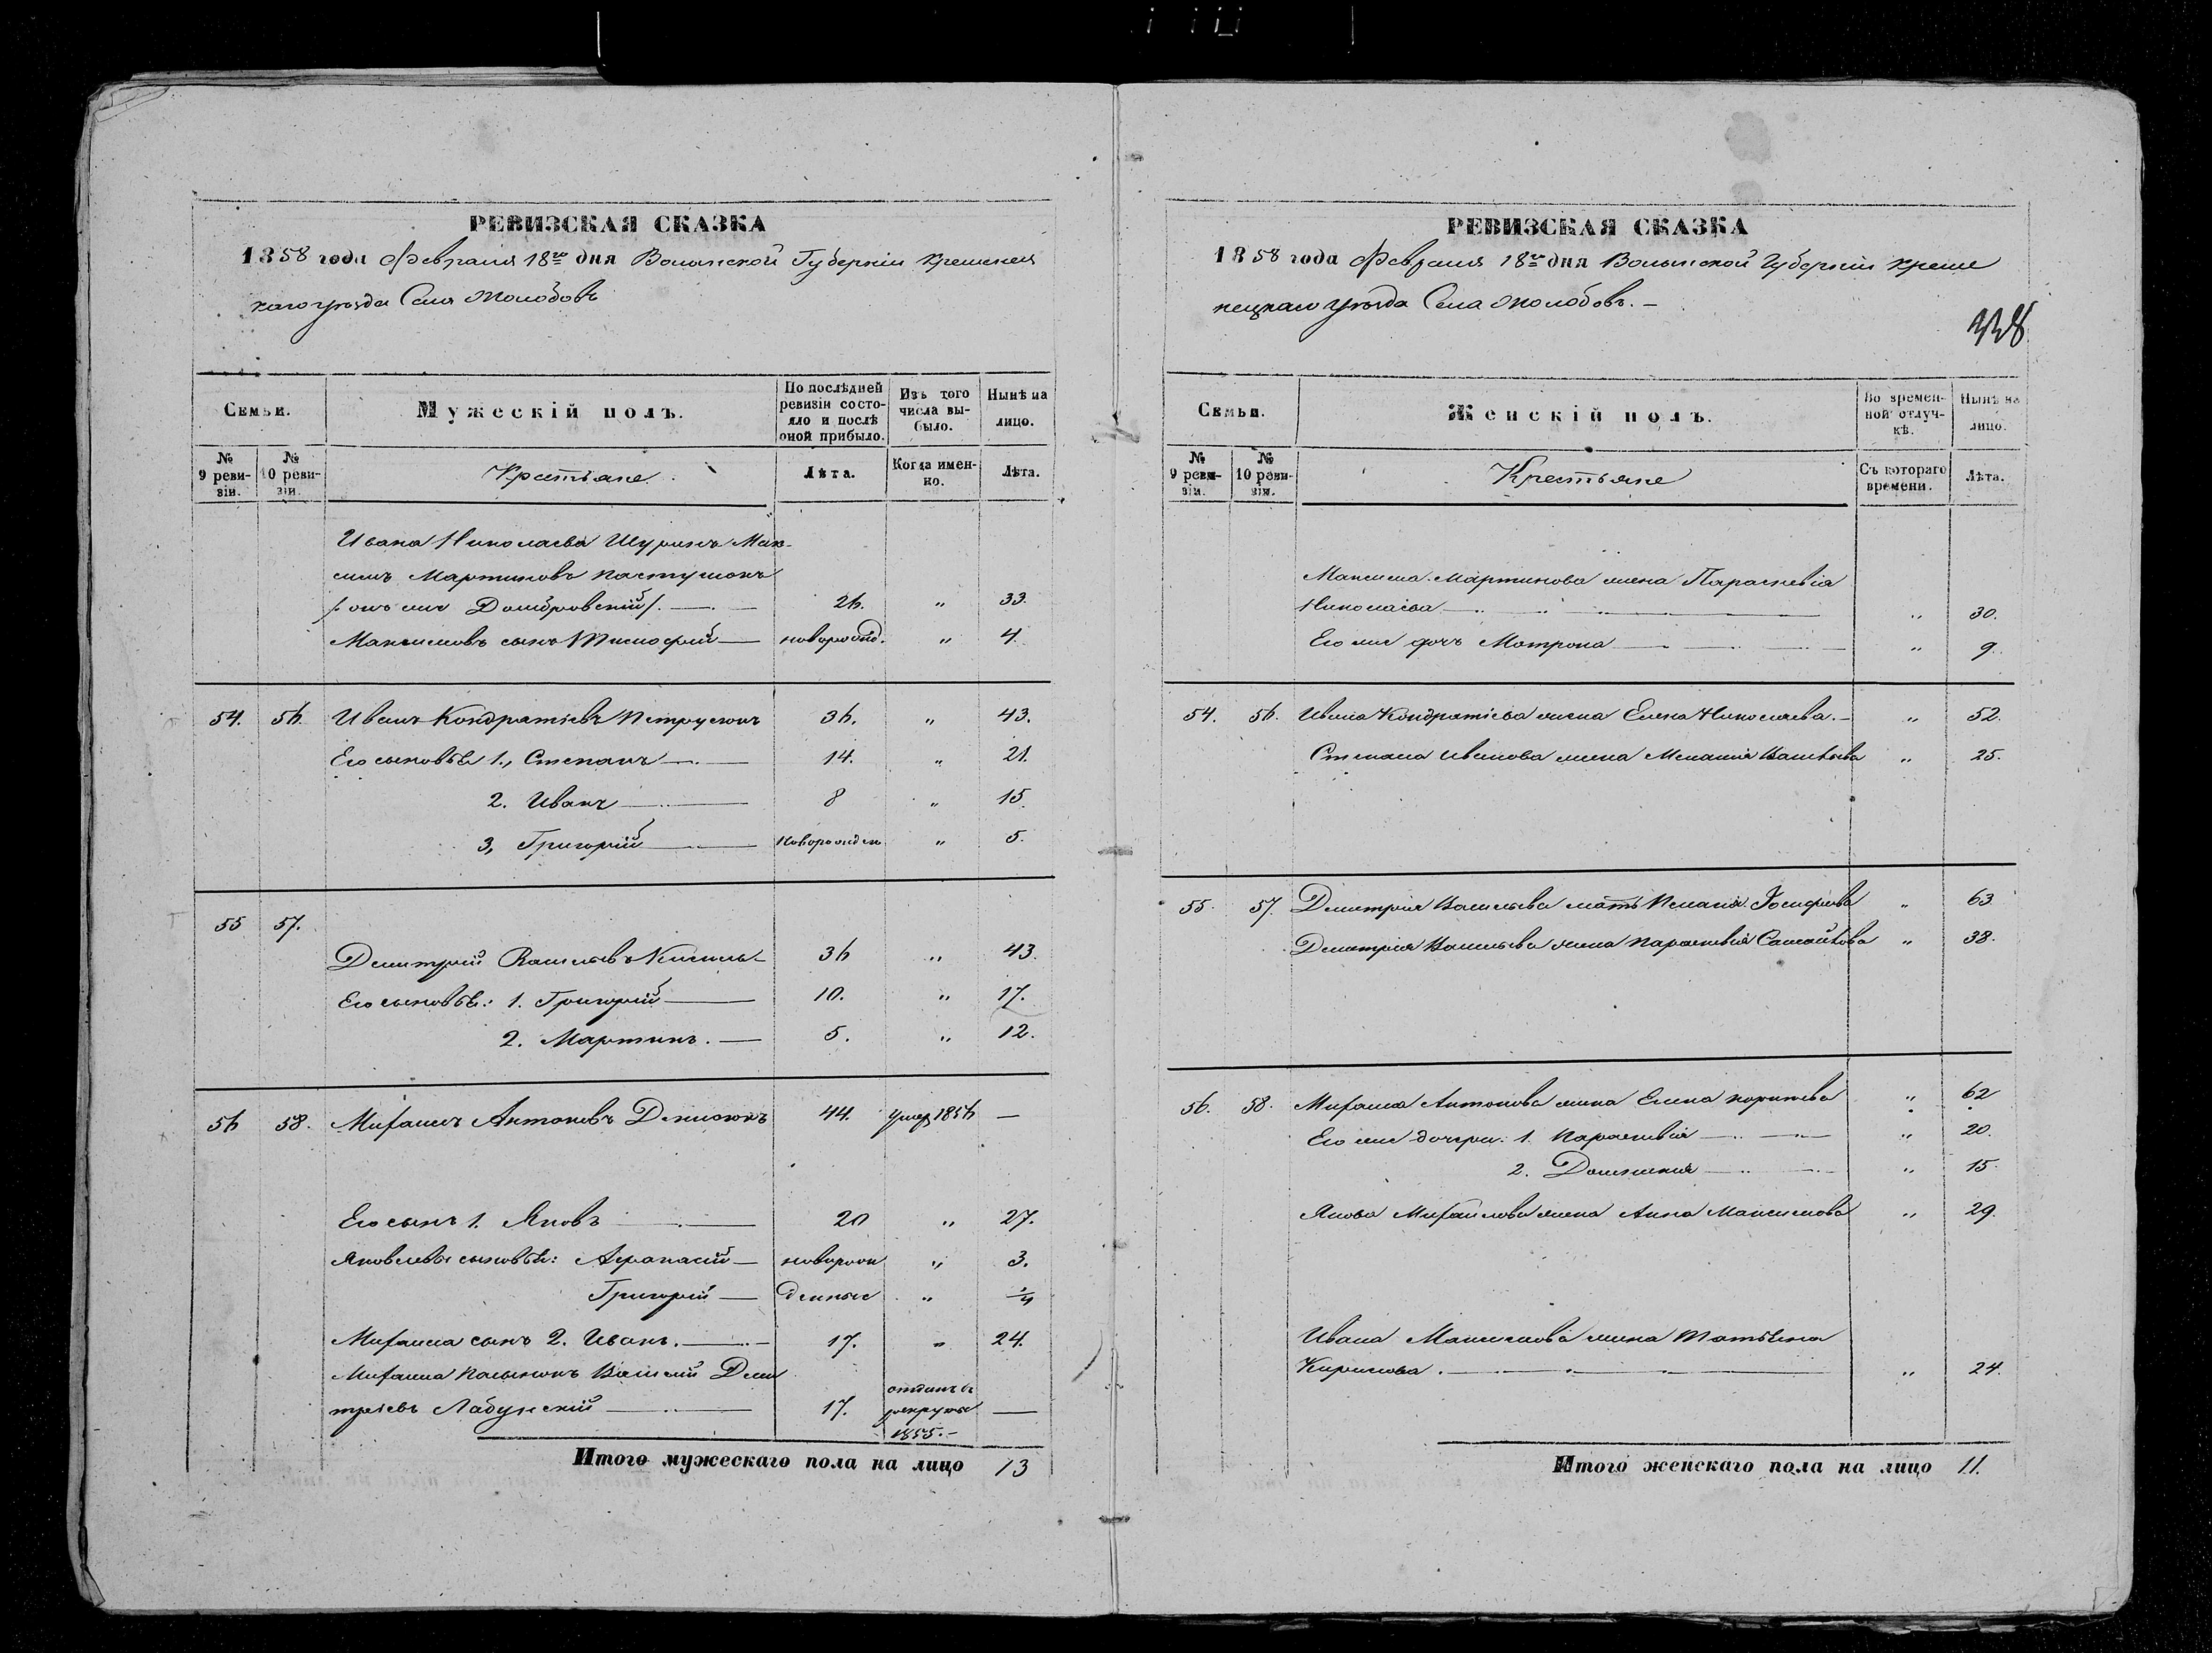 РЕВИЗСКАЯ СКАЗКА
1858 года Февраля 18го дня Волынской Губерніи Кременец
каго уѣзда Села Жолобовъ
Семьи.
Мужескій полъ.
По послѣдней ревизіи состояло и послѣ оной прибыло.
Изъ того числа выбыло.
Нынѣ на лицо.
№ 9 ревизіи.
№ 10 ревизіи.
Крестьяне
Лѣта.
Когда именно.
Лѣта.
Ивана Николаева Шуринъ Мак-
симъ Мартиновъ Пастушокъ
/: онъ же Домбровскій /. 26. " 33.
Максимовъ сынъ Тимофей новорожд. " 4.
54. 56. Иванъ Кондратіевъ Петрусюкъ 36. " 43.
Его сыновья 1., Степанъ 14. " 21.
2. Иванъ 8 " 15.
3, Григорій новорожден " 5.
55 57.
Дмитрий Васильевъ Кисиль 36 " 43.
Его сыновья: 1. Григорій 10. " 17.
2. Мартинъ. 5. " 12.
56 58. Михаилъ Антоновъ Денисюкъ 44. умер 1856 —
Его сынъ 1. Яковъ 20 " 27.
Яковлевы сыновья: Афанасій новорож " 3.
Григорій денные "
Михаила сынъ 2. Иванъ. 17. " 24.
Михаила пасынокъ Василий Дми
тріевъ Лабунскій 17. отданъ в рекруты 1855. —
Итого мужескаго пола на лицо 13
РЕВИЗСКАЯ СКАЗКА
1858 года Февраля 18го дня Волынской Губерніи Креме
нецкаго уѣзда Села Жолобовъ. —
Семьи.
Женскій полъ.
Во временной отлучкѣ.
Нынѣ на лицо.
№ 9 ревизіи.
№ 10 ревизіи.
Крестьяне
Съ котораго времени.
Лѣта.
Максима Мартинова жена Параскевія
Николаева " 30.
Его же дочь Матрона " 9
54. 56. Ивана Кондратіева жена Елена Николаева. — " 52.
Степана Иванова жена Меланія " 25.
55. 57. Дмитрія Васильева мать Іосифова " 63
Дмитрія Васильева жена Параскевія " 38.
56. 58. Михаила Антонова жена Елена " 62
Его же дочери: 1. Параскевія " 20.
2. Домникія " 15.
Якова Михайлова жена Анна Максимова " 29.
Ивана жена Татьяна
Кирилова. " 24.
Итого женскаго пола на лицо 11.